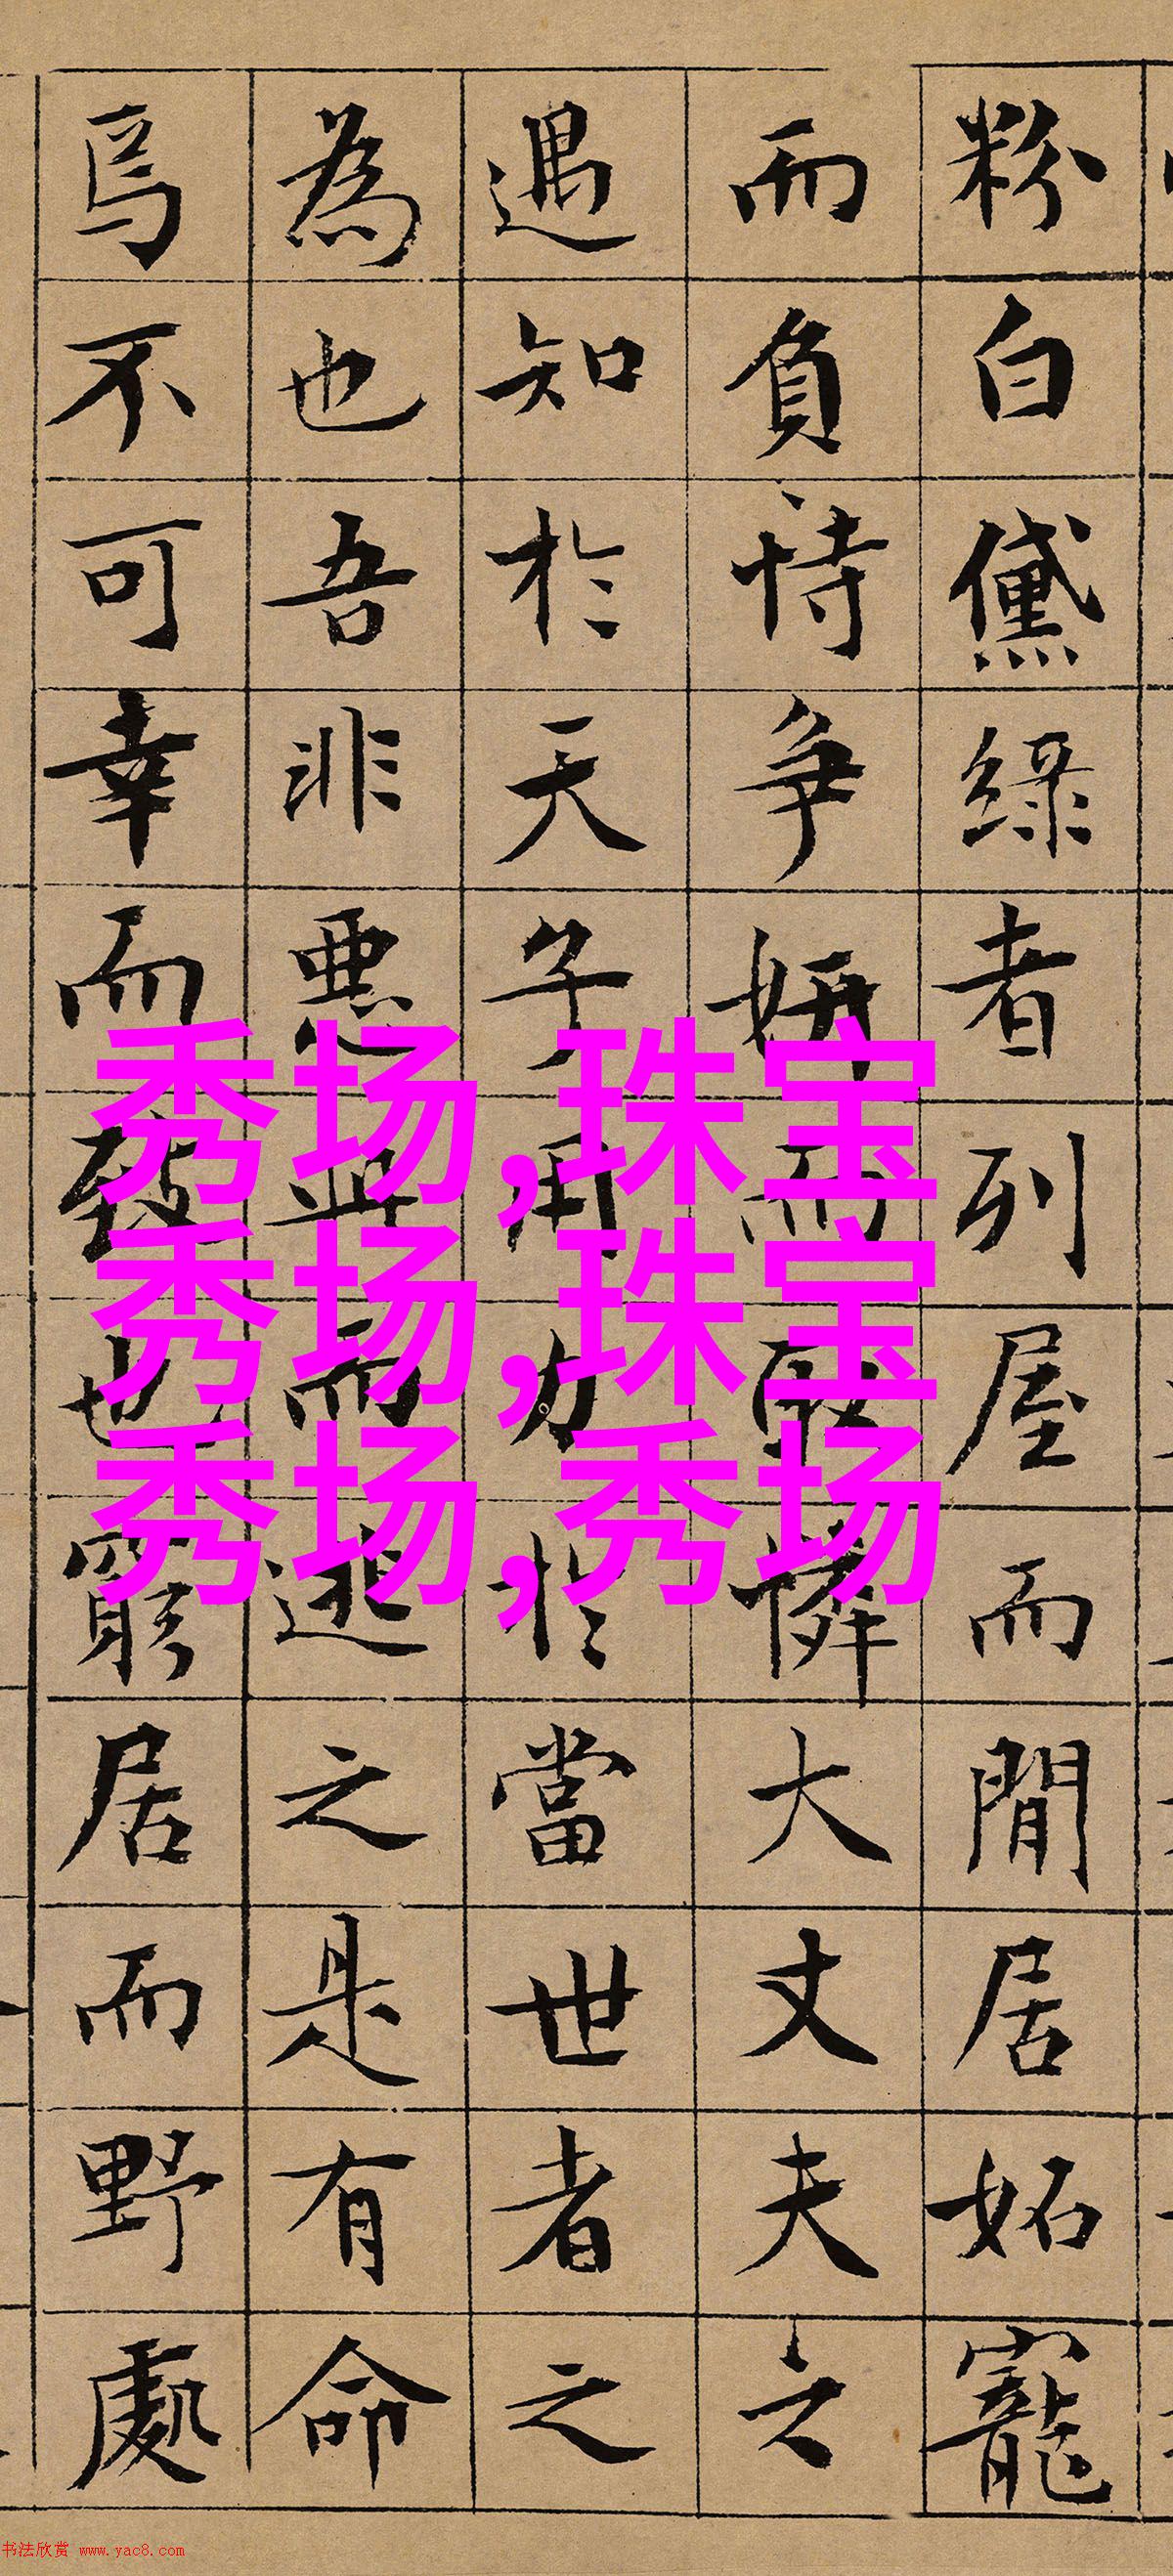 粉白黛綠者列屋而閒居妬寵
而負恃爭妍而取憐大丈夫之
遇知於天子用力於當世者之
為也吾非惡此而逃之是有命
焉不可幸而致也窮居而野處
秀场,珠宝
秀场,珠宝
秀场,秀场
书法欣赏 www.yac8.com